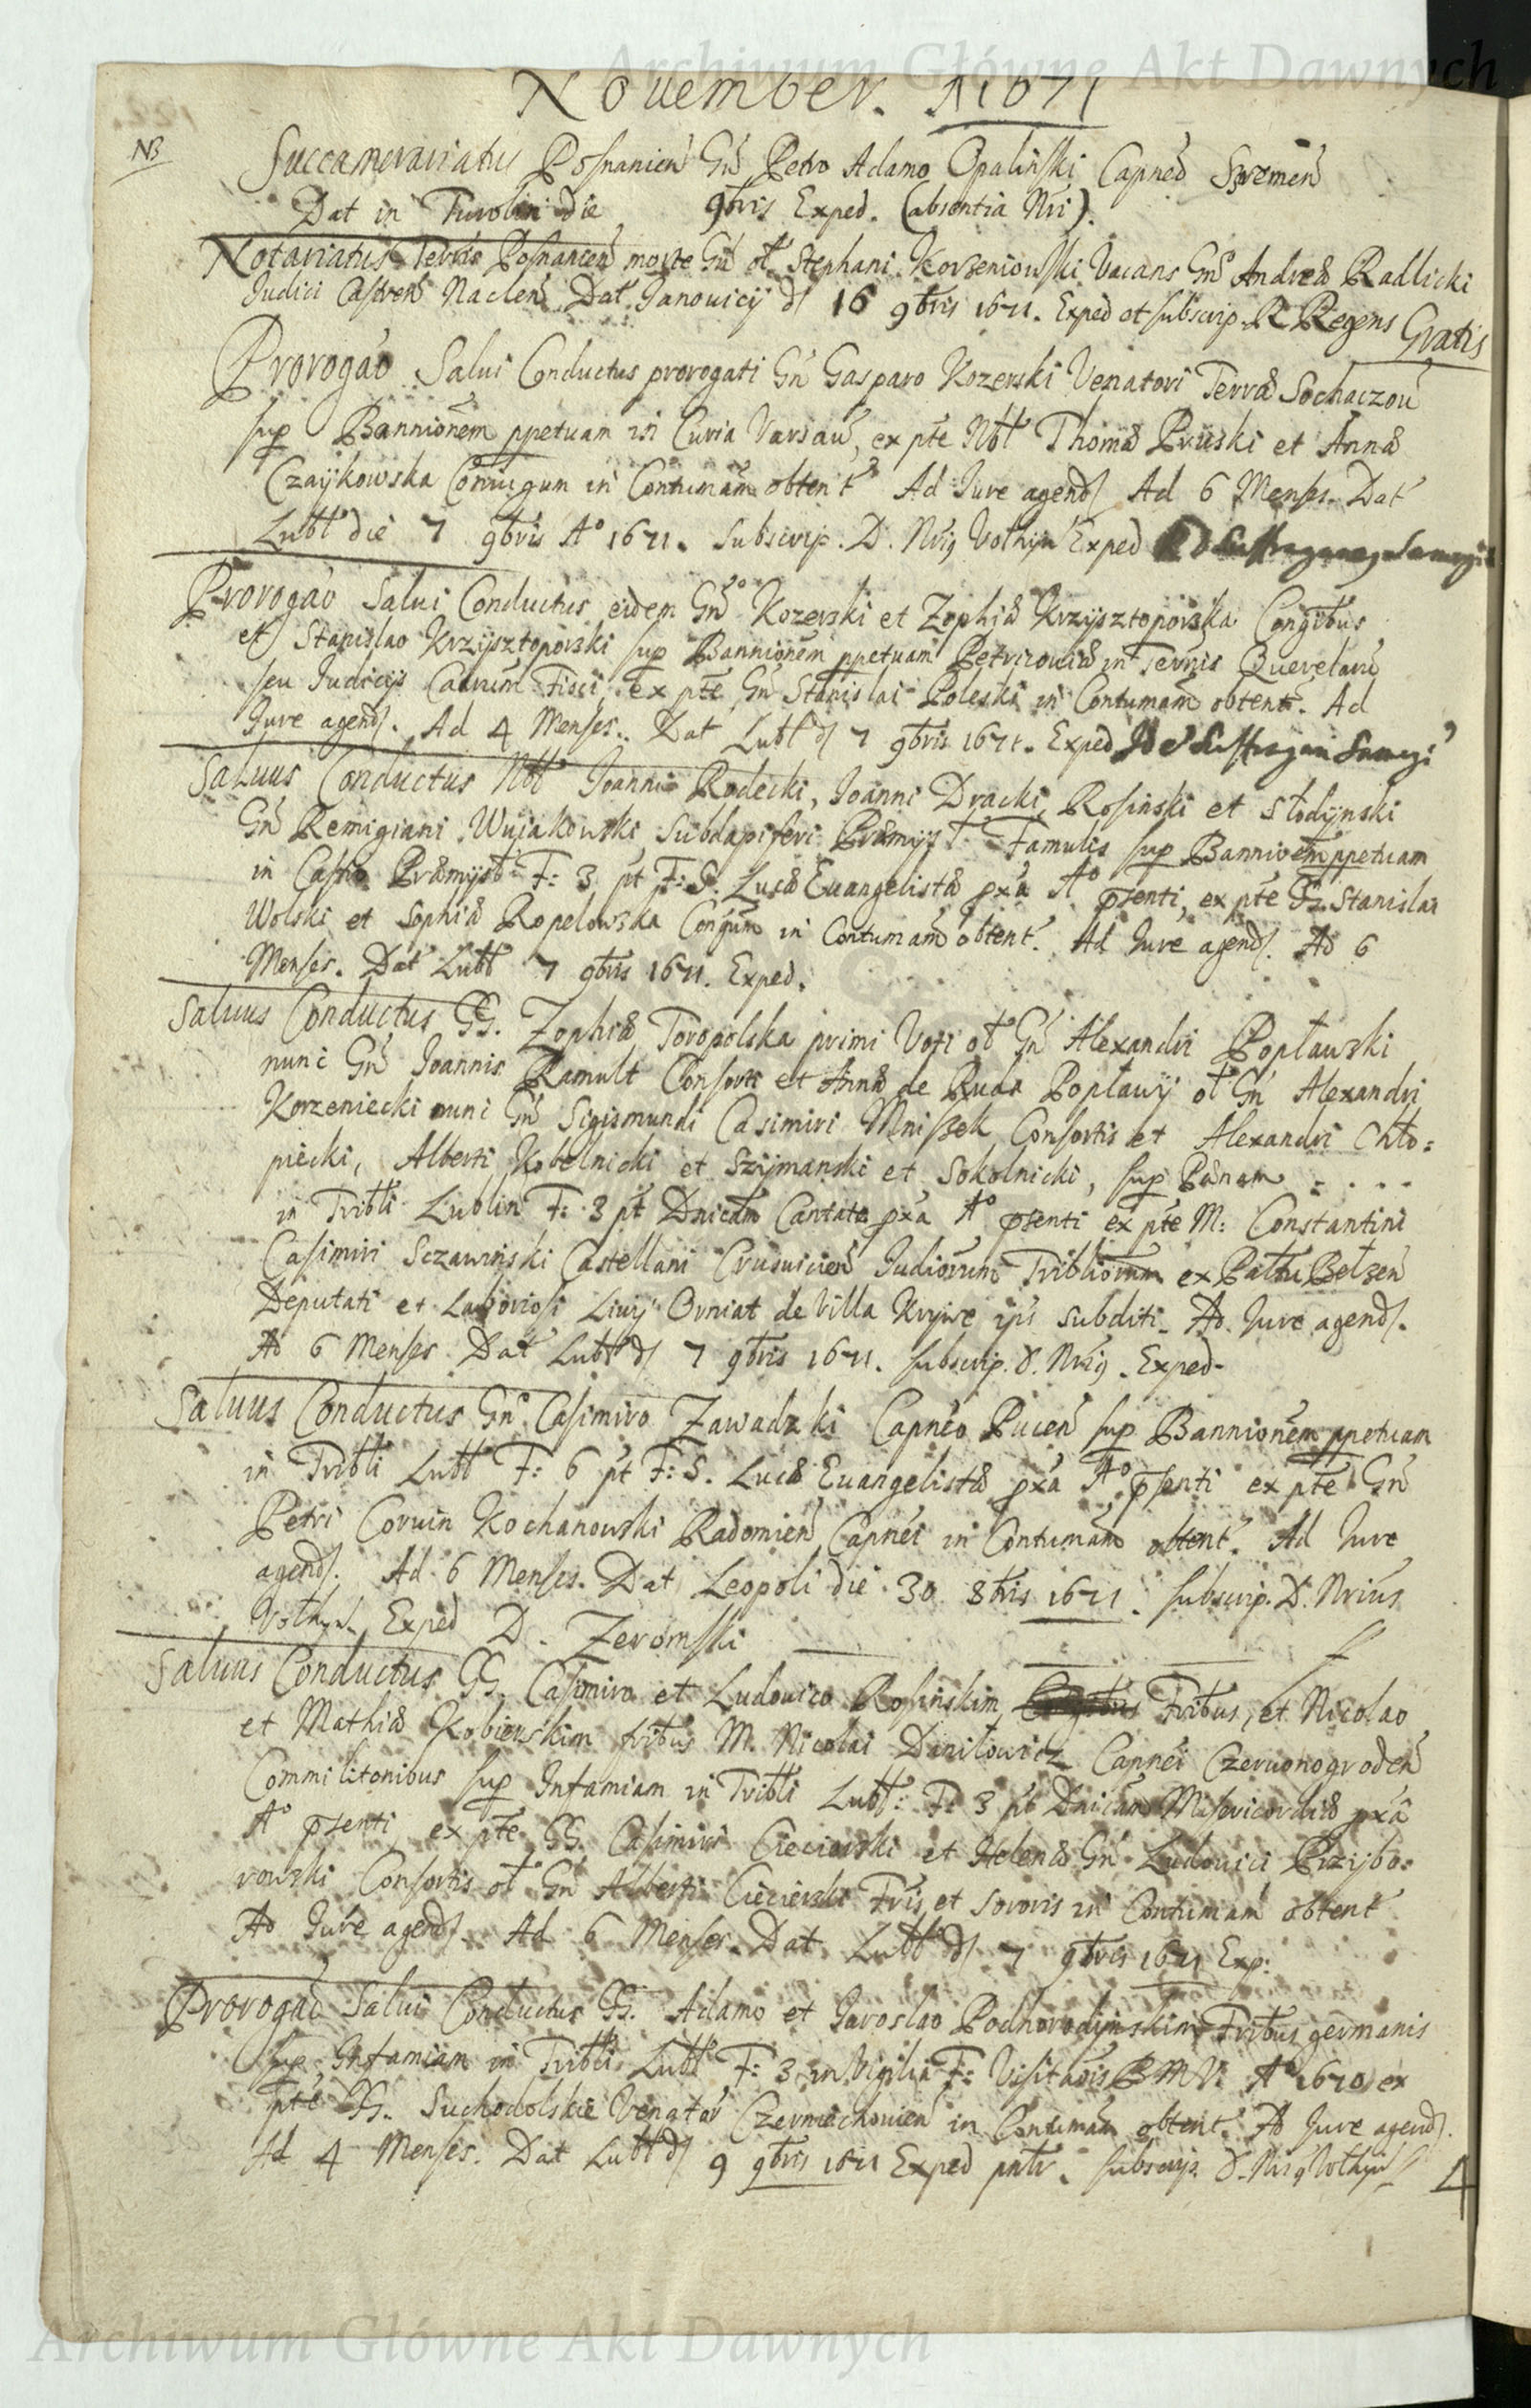 Archiwum Główne Akt Dawnych
Nouember. A 1671
NB
Succamerariatus Posnanien Gn Petro Adamo Opalinski Capneo Sremen
Dat in Turobin die 9bris Exped. (absentia Nri).
Notariatus Terris Posnanien morte Gn ol Stephani Korzeniowski Vacans Gno Andreæ Radlicki
Iudici Castren Naclen Dat Ianouicij d 16 9bris 1671. Exped et subscrip. R Regens Gratis
Prorogao Salui Conductus prorogati Gn Gasparo Kozerski Venatori Terræ Sochaczou
sup Bannionem ppetuam in Curia Varsau, ex pte Nbl Thomæ Pruski et Annæ
Czaÿkowska Coniugum in Contumam obtent Ad Iure agend Ad 6 Menses. Dat
Lubl die 7 9bris Ao 1671. Subscrip. D. Nrig Volhyn Exped
Prorogao Salui Conductus eidem Gno Kozerski et Zophiæ Krzysztoporska Congibus
et Stanislao Krzysztoporski sup Bannionem ppetuam Petricouiæ in Termis Querelaru
seu Iudicijs Caarum Fisci, ex pte Gn Stanislai Poleski in Contumam obtent. Ad
Iure agend. Ad 4 Menses. Dat Lubl d 7 9bris 1671. Exped
Saluus Conductus Nbl Ioanni Rodecki, Ioanni Dracki, Rosinski et Słodynski
Gn Remigiani Wujakowski Subdapiferi Præmysl Famulis sup Bannionem ppetuam
in Castro Præmysl F: 3 pt F: S. Lucæ Euangelistæ pxa Ao psenti, ex pte G. Stanislai
Wolski et Sophiæ Ropelowska Congum in Contumam obtent. Ad Iure agend. Ad 6
Menses. Dat Lubl 7 9bris 1671. Exped.
Saluus Conductus GG. Zophiæ Toropolska primi Voti ol Gn Alexandri Popławski
nunc Gn Ioannis Ramult Consorti et Annæ de Ruda Popławÿ ol Gn Alexandri
Korzeniecki nunc Gn Sigismundi Casimiri Mniszek Consortis et Alexandri Chło=
piecki, Alberti Kobelnicki et Szijmanski et Sokolnicki, sup Pænam . . . .
in Tribli Lublin F: 3 pt Dnicam Cantate pxa Ao psenti ex pte M: Constantini
Casimiri Sczawinski Castellani Crusuicien Iudiorum Tribliorum ex Paltu Belzen
Deputati et Laboriosi Liuij Orniat de Villa Krywe ips subditi. Ad Iure agend.
Ad 6 Menses. Dat Lubl d 7 9bris 1671. subscrip. D. Nrig. Exped.
Saluus Conductus Gno Casimiro Zawadzki Capneo Pucen sup Bannionem ppetuam
in Tribli Lubl F: 6 pt F: S. Lucæ Euangelistæ pxa Ao psenti ex pte Gn
Petri Coruin Kochanowski Radomien Capnei in Contumam obtent. Ad Iure
agend. Ad 6 Menses. Dat Leopoli die 30 8bris 1671. subscrip. D. Nrius
Volhyn. Exped D. Zeromski
Saluus Conductus GG. Casimiro et Ludouico Rosinskim Fribus, et Nicolao
et Mathiæ Kobierskim fribus M. Nicolai Daniłowicz Capnei Czeruonogroden
Commilitonibus sup Infamiam in Tribli Lubl: F: 3 pt Dnicam Misericordiæ pxa
Ao psenti ex pte GG. Casimiri Ciecierski et Helenæ Gn Ludouici Przijbo=
rowski Consortis ol Gn Alberti Ciecierski Fris, et sororis in Contumam obtent
Ad Iure agend. Ad 6 Menses. Dat Lubl d 7 9bris 1671 Exp:
Prorogao Salui Conductus GG. Adamo et Iaroslao Podhorodynskim Fribus germanis
sup Infamiam in Tribli Lubl F: 3 in Vigilia F: Visitaois BMV Ao 1670 ex
pte GG. Suchodolskie Venator Czerniechouien in Contumam obtent. Ad Iure agend.
Ad 4 Menses. Dat Lubl d 9 9bris 1671 Exped pntr. subscrip. D. Nrig Volhyn
4
Archiwum Główne Akt Dawnych